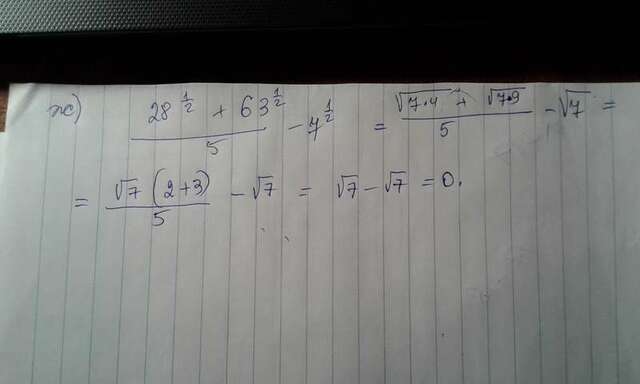 ж) (28^{1/2} + 63^{1/2})/5 - 7^{1/2} = (√(7·4) + √(7·9))/5 - √7 =
= (√7 (2+3))/5 - √7 = √7 - √7 = 0.